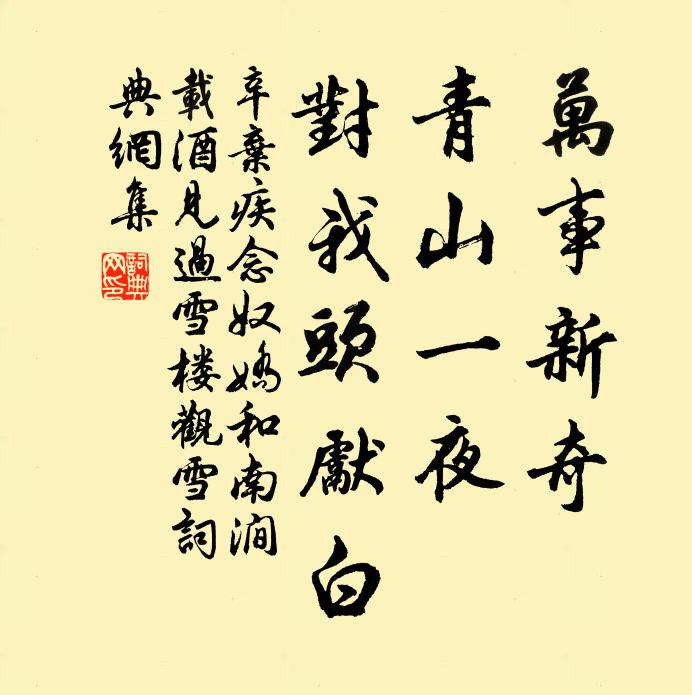 萬事新奇
青山一夜
對我頭嚴白
辛棄疾念奴嬌和南澗
載酒見過雪楼觀雪詞
典網集
詞典
网印